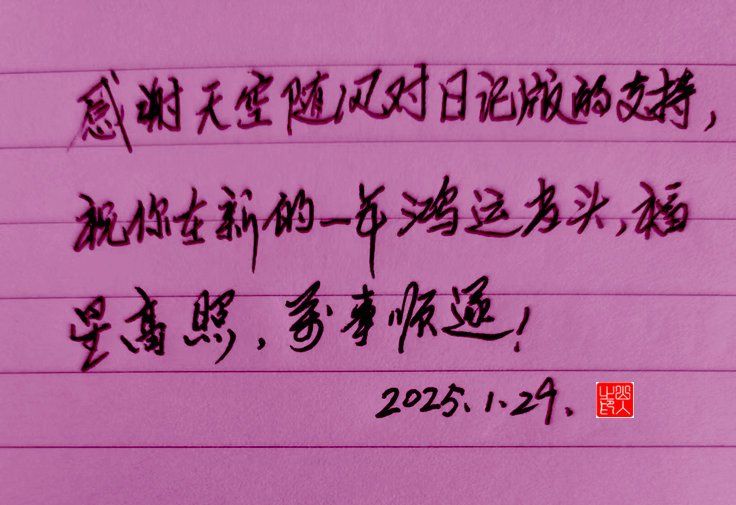 感谢天空随风对日记版的支持，
祝你在新的一年鸿运当头，福
星高照，万事顺遂！
2025.1.29.